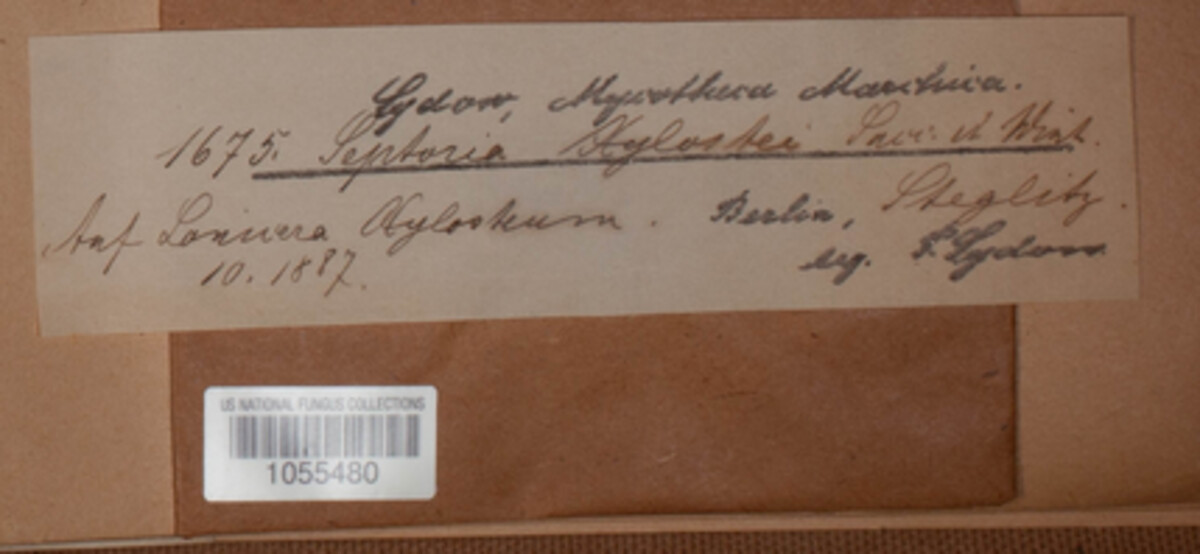 Sydow, Mycotheca Marchica.
1675. Septoria Xylostei Sacc. et Wint.
Auf Lonicera Xylosteum. Berlin, Steglitz.
10. 1887. leg. P. Sydow
US NATIONAL FUNGUS COLLECTIONS
1055480